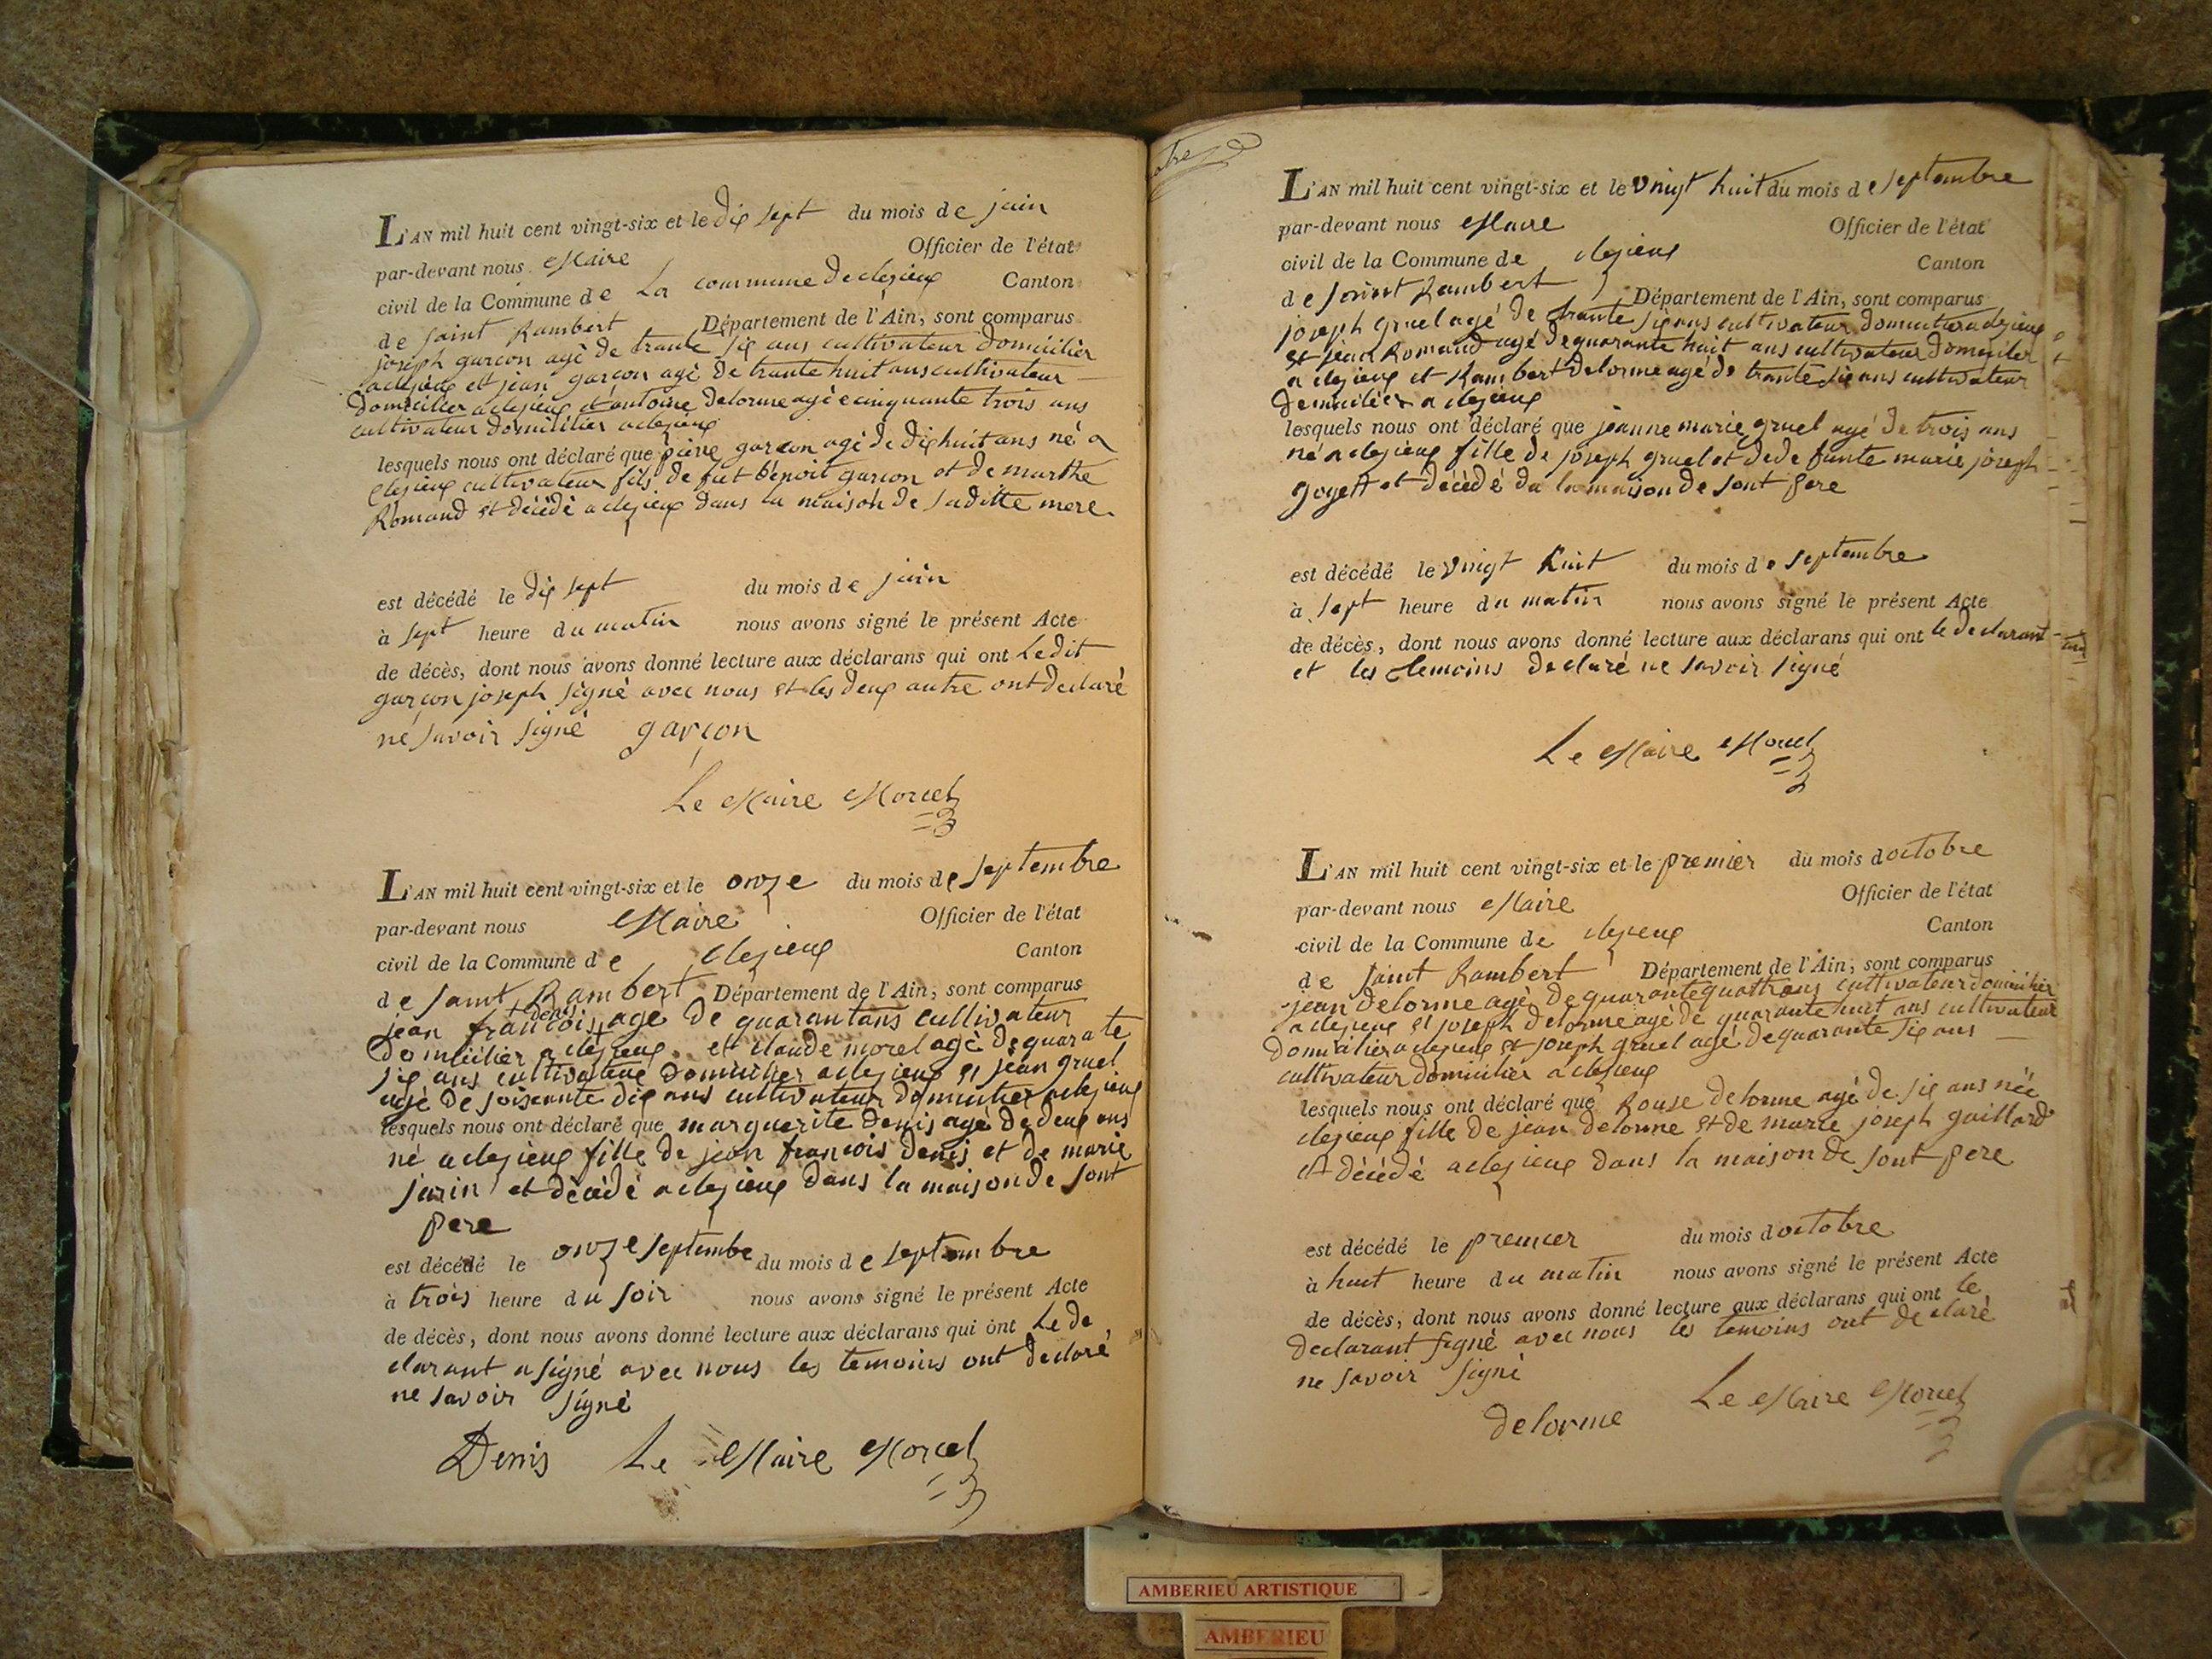 L'AN mil huit cent vingt-six et le dix sept du mois de juin
par-devant nous Maire Officier de l'état
civil de la Commune de La commune de clezieux Canton
de Saint Rambert Département de l'Ain, sont comparus
joseph garcon agé de trante six ans cultivateur domicilier
a clezieux et jean garçon agé de trante huit ans cultivateur
domicilier a clezieux et antoine delorme agé e cinquante trois ans
cultivateur domicilier a clezieux
lesquels nous ont déclaré que piere garcon agé de dix huit ans né a
clezieux cultivateur fils de fut benoit garcon et de marthe
Romand et décédé a clezieux dans la maison de sa ditte mere.
est décédé le dix sept du mois de juin
à sept heure du matin nous avons signé le présent Acte
de décès, dont nous avons donné lecture aux déclarans qui ont Le dit
garçon joseph signé avec nous et les deux autre ont declaré
ne savoir signé garçon
Le Maire Morcel
L'AN mil huit cent vingt-six et le onze du mois de septembre
par-devant nous Maire Officier de l'état
civil de la Commune de clezieux Canton
de saint Rambert Département de l'Ain, sont comparus
denis
jean francois agé de quarantans cultivateur
domicilier a clezieux et claude morel agé de quarate
six ans cultivateur domicilier a clezieux et jean gruel
agé de soixante dix ans cultivateur domicilier a clezieux
lesquels nous ont déclaré que marguerite denis agé de deux ans
né a clezieux fille de jean francois denis et de marie
jarin et décédé a clezieux dans la maison de sont
pere
est décédé le onze septembe du mois de septembre
à trois heure du soir nous avons signé le présent Acte
de décès, dont nous avons donné lecture aux déclarans qui ont Le de
clarant a signé avec nous les temoins ont declaré
ne savoir signé
Denis Le Maire Morcel
L'AN mil huit cent vingt-six et le vingt huit du mois de septembre
par-devant nous Maire Officier de l'état
civil de la Commune de clezieux Canton
de saint Rambert Département de l'Ain, sont comparus
joseph gruel agé de trante six ans cultivateur domicilier a clezieux
et jean Romand agé de quarante huit ans cultivateur domicilier
a clezieux et Rambert delorme agé de trante six ans cultivateur
domicilier a clezieux
lesquels nous ont déclaré que jeanne marie gruel agé de trois ans
né a clezieux fille de joseph gruel et de de funte marie joseph
goyett et décédé da la maison de sont pere
est décédé le vingt huit du mois de septembre
à sept heure du matin nous avons signé le présent Acte
de décès, dont nous avons donné lecture aux déclarans qui ont le declarant
et les temoins declaré ne savoir signé
Le Maire Morcel
L'AN mil huit cent vingt-six et le premier du mois doctobre
par-devant nous Maire Officier de l'état
civil de la Commune de clezieux Canton
de saint Rambert Département de l'Ain, sont comparus
jean delorme agé de quarante quattrans cultivateur domicilier
a clezieux et joseph delorme agé de quarante huit ans cultivateur
domicilier a clezieux et joseph gruel agé de quarante six ans
cultivateur domicilier a clezieux
lesquels nous ont déclaré que Rouse delorme agé de six ans née
clezieux fille de jean delorme et de marie joseph gaillard
et décédé a clezieux dans la maison de sont pere
est décédé le premier du mois doctobre
à huit heure du matin nous avons signé le présent Acte
de décès, dont nous avons donné lecture aux déclarans qui ont le
declarant signé avec nous les temoins ont declaré
ne savoir signé
Le Maire Morcel
delorme
AMBERIEU ARTISTIQUE
AMBERIEU